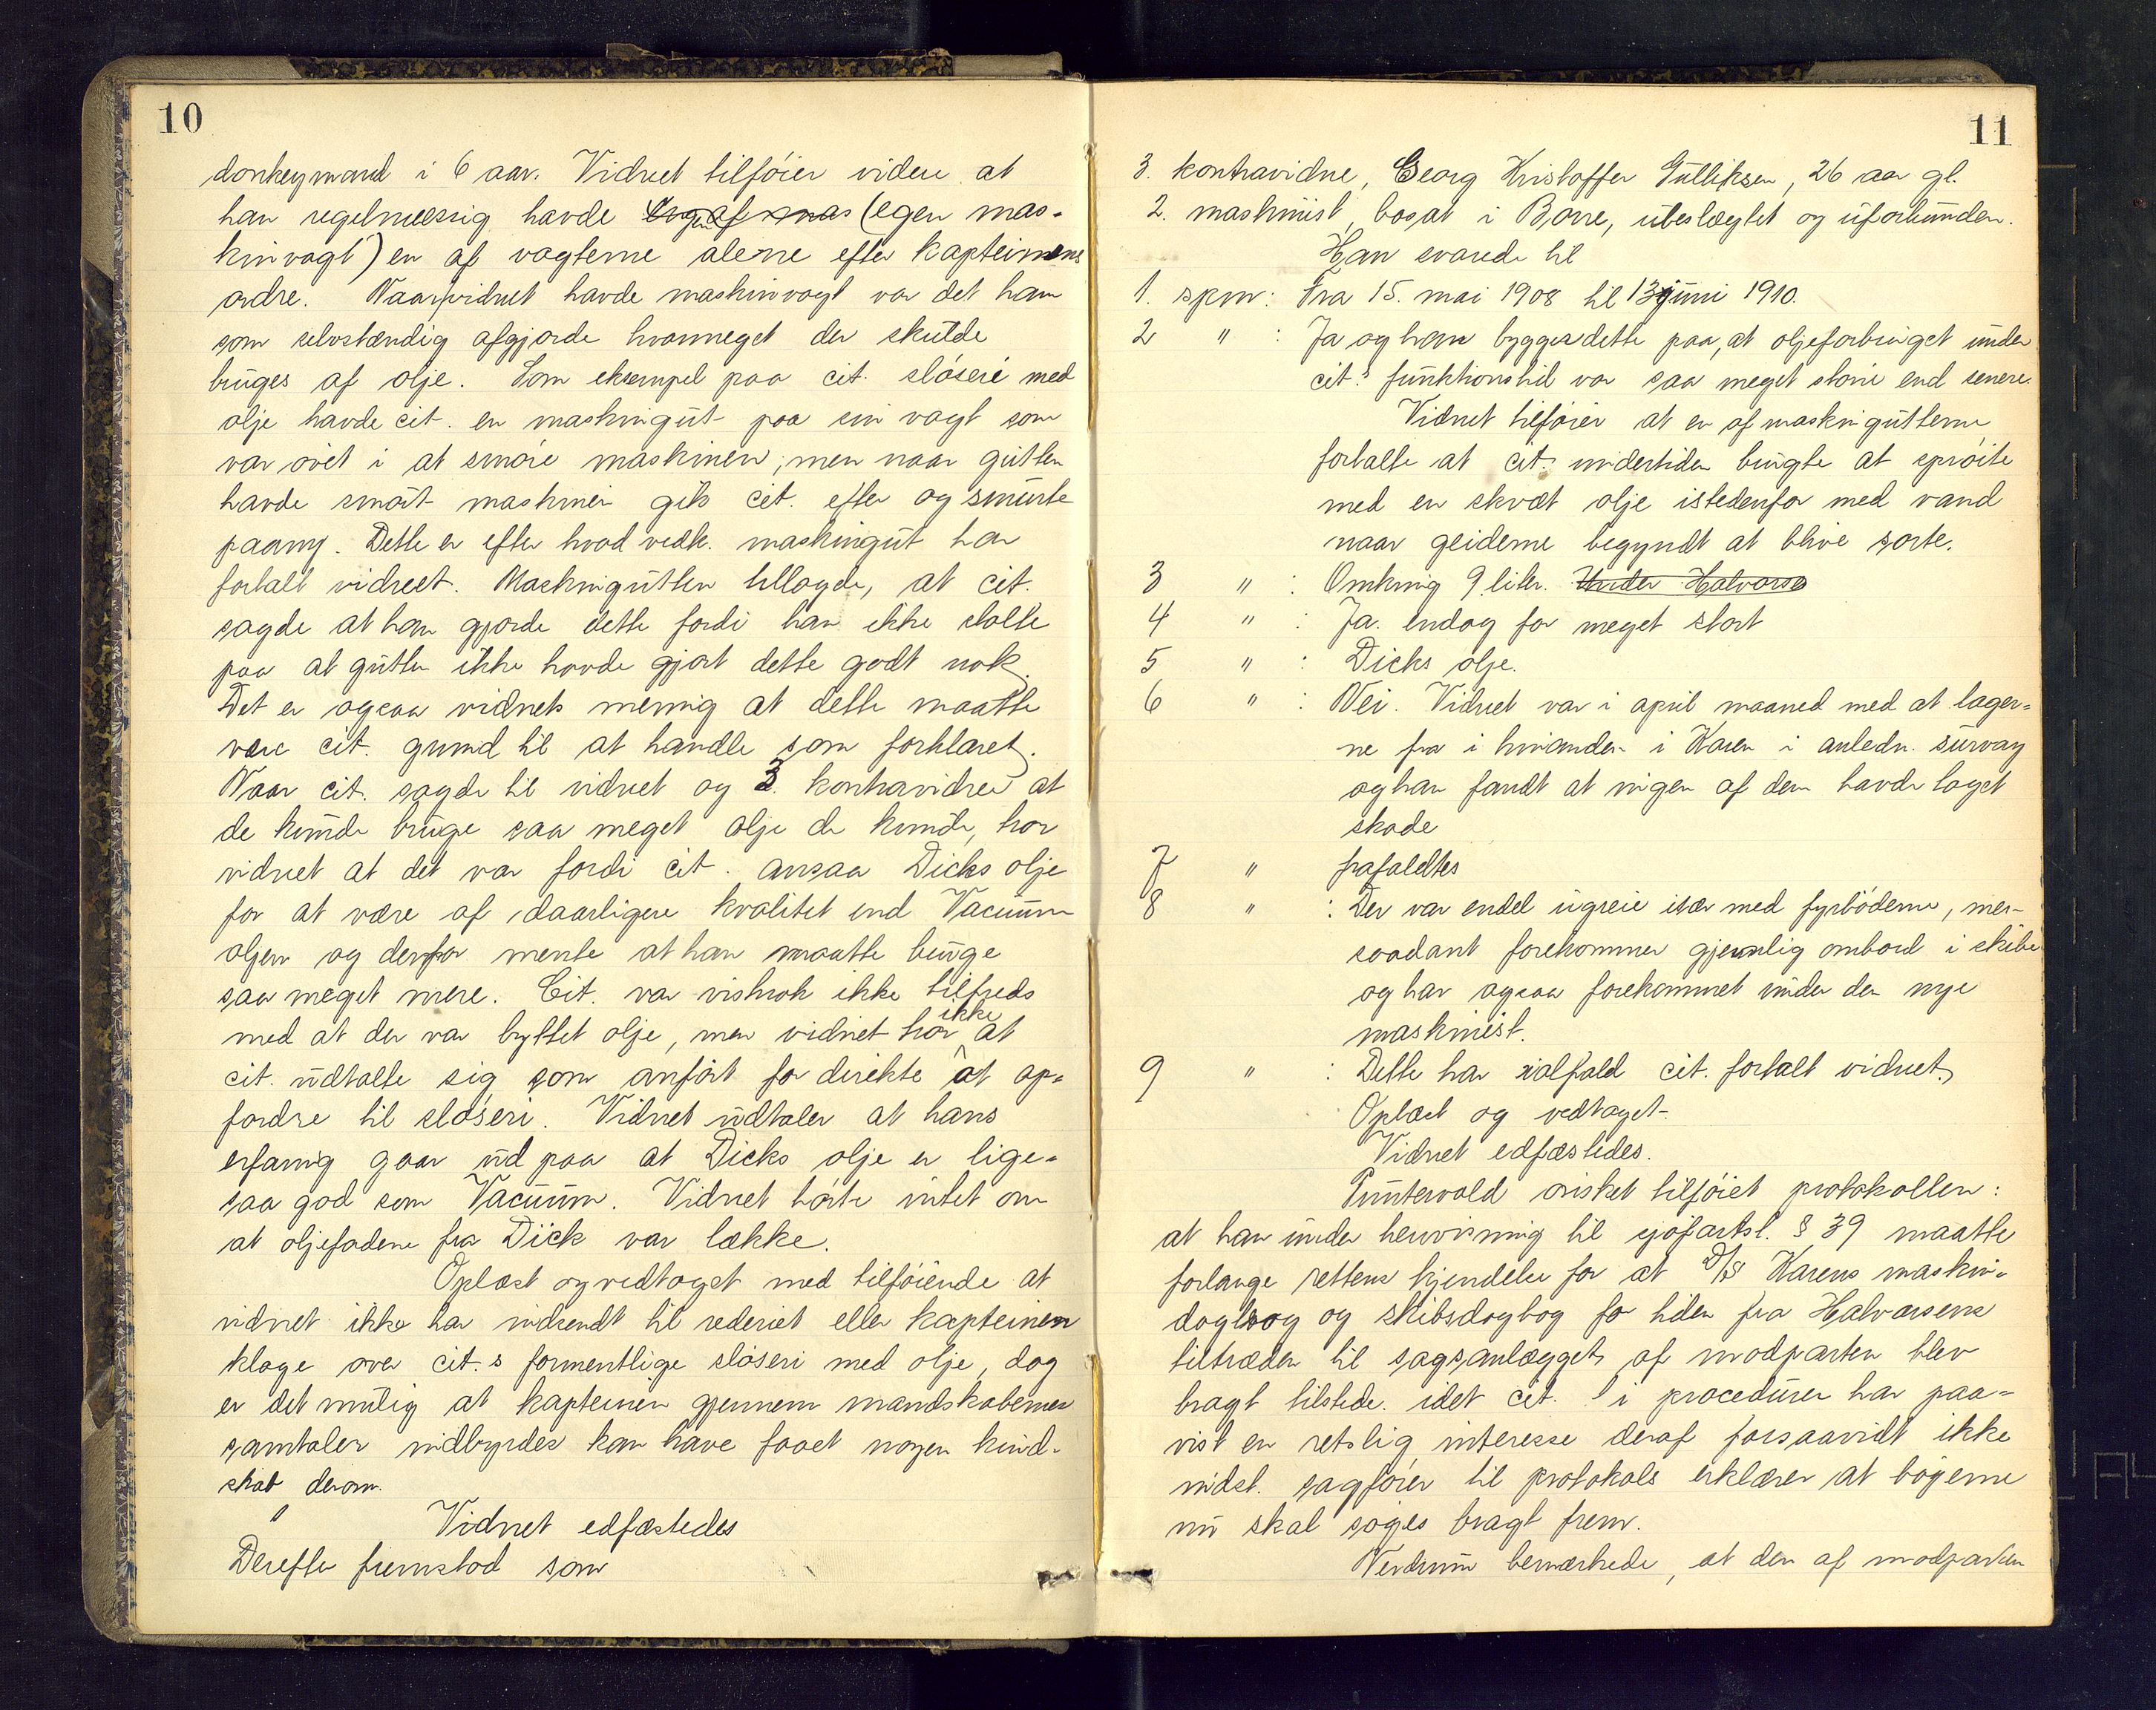 10
donkeymand i 6 aar. Vidnet tilføier videre at
han regelmæssig havde (egen mas-
kinvagt) en af vagterne alene efter kapteinens
ordre. Naar vidnet havde maskinvagt var det ham
som selvstændig afgjorde hvormeget der skulde
bruges af olje. Som eksempel paa cit. sløseri med
olje havde cit. en maskingut paa sin vagt som
var øvet i at smøre maskinen, men naar gutten
havde smørt maskinen gik cit. efter og smurte
paany. Dette er efter hvad vedk. maskingut har
fortalt vidnet. Maskingutten tillagde, at cit.
sagde at han gjorde dette fordi han ikke stolte
paa at gutten ikke havde gjort dette godt nok.
Det er ogsaa vidnets mening at dette maatte
være cit. grund til at handle som forklaret.
Naar cit. sagde til vidnet og 3. kontravidne at
de kunde bruge saa meget olje de kunde, tror
vidnet at det var fordi cit. ansaa Dicks olje
for at være af daarligere kvalitet end Vacuum
oljen og derfor mente at han maatte bruge
saa meget mere. Cit. var vistnok ikke tilfreds
med at der var byttet olje, men vidnet tror ikke at
cit. udtalte sig som anført for direkte at op-
fordre til sløseri. Vidnet udtaler at hans
erfaring gaar ud paa at Dicks olje er lige-
saa god som Vacuum. Vidnet hørte intet om
at oljefadene fra Dick var lække.
Oplæst og vedtaget med tilføiende at
vidnet ikke har indsendt til rederiet eller kapteinen
klage over cit.s formentlige sløseri med olje, dog
er det mulig at kapteinen gjennem mandskabernes
samtaler indbyrdes kan have faaet nogen kund-
skab derom.
Vidnet edfæstedes
Derefter fremstod som
11
3. kontravidne, Georg Kristoffer Gulliksen, 26 aar gl.
2. maskinist, bosat i Borre, ubeslægtet og uforbunden.
Han svarede til
1. spm: Fra 15. mai 1908 til 13 juni 1910.
2 " : Ja og han bygger dette paa, at oljeforbruget under
cit.s funktionstid var saa meget større end senere.
Vidnet tilføier at en af maskingutterne
fortalte at cit. undertiden brugte at sprøite
med en skvæt olje istedenfor med vand
naar geiderne begyndt at blive sorte.
3 " : Omkring 9 liter. Under Halvorse
4 " : Ja. endog for meget stort
5 " : Dicks olje.
6 " : Nei. Vidnet var i april maaned med at lager-
ne fra i hinanden i Karen i anledn. survay
og han fandt at ingen af dem havde taget
skade
7 " frafaldtes
8 " : Der var endel ugreie især med fyrbøderne, men
saadant forekommer gjevnlig ombord i skibe
og har ogsaa forekommet under den nye
maskinist.
9 " : Dette har ialfald cit. fortalt vidnet.
Oplæst og vedtaget.
Vidnet edfæstedes.
Puntervold ønsket tilføiet protokollen:
at han under henvisning til sjøfartsl. § 39 maatte
forlange rettens kjendelse for at D/S Karens maskin-
dagbog og skibsdagbog for tiden fra Halvorsens
tiltræden til sagsanlægget af modparten blev
bragt tilstede. idet cit. i proceduren har paa-
vist en retslig interesse deraf forsaavidt ikke
indst. sagfører til protokols erklærer at bøgerne
nu skal søges bragt frem.
bemærkede, at den af modparten